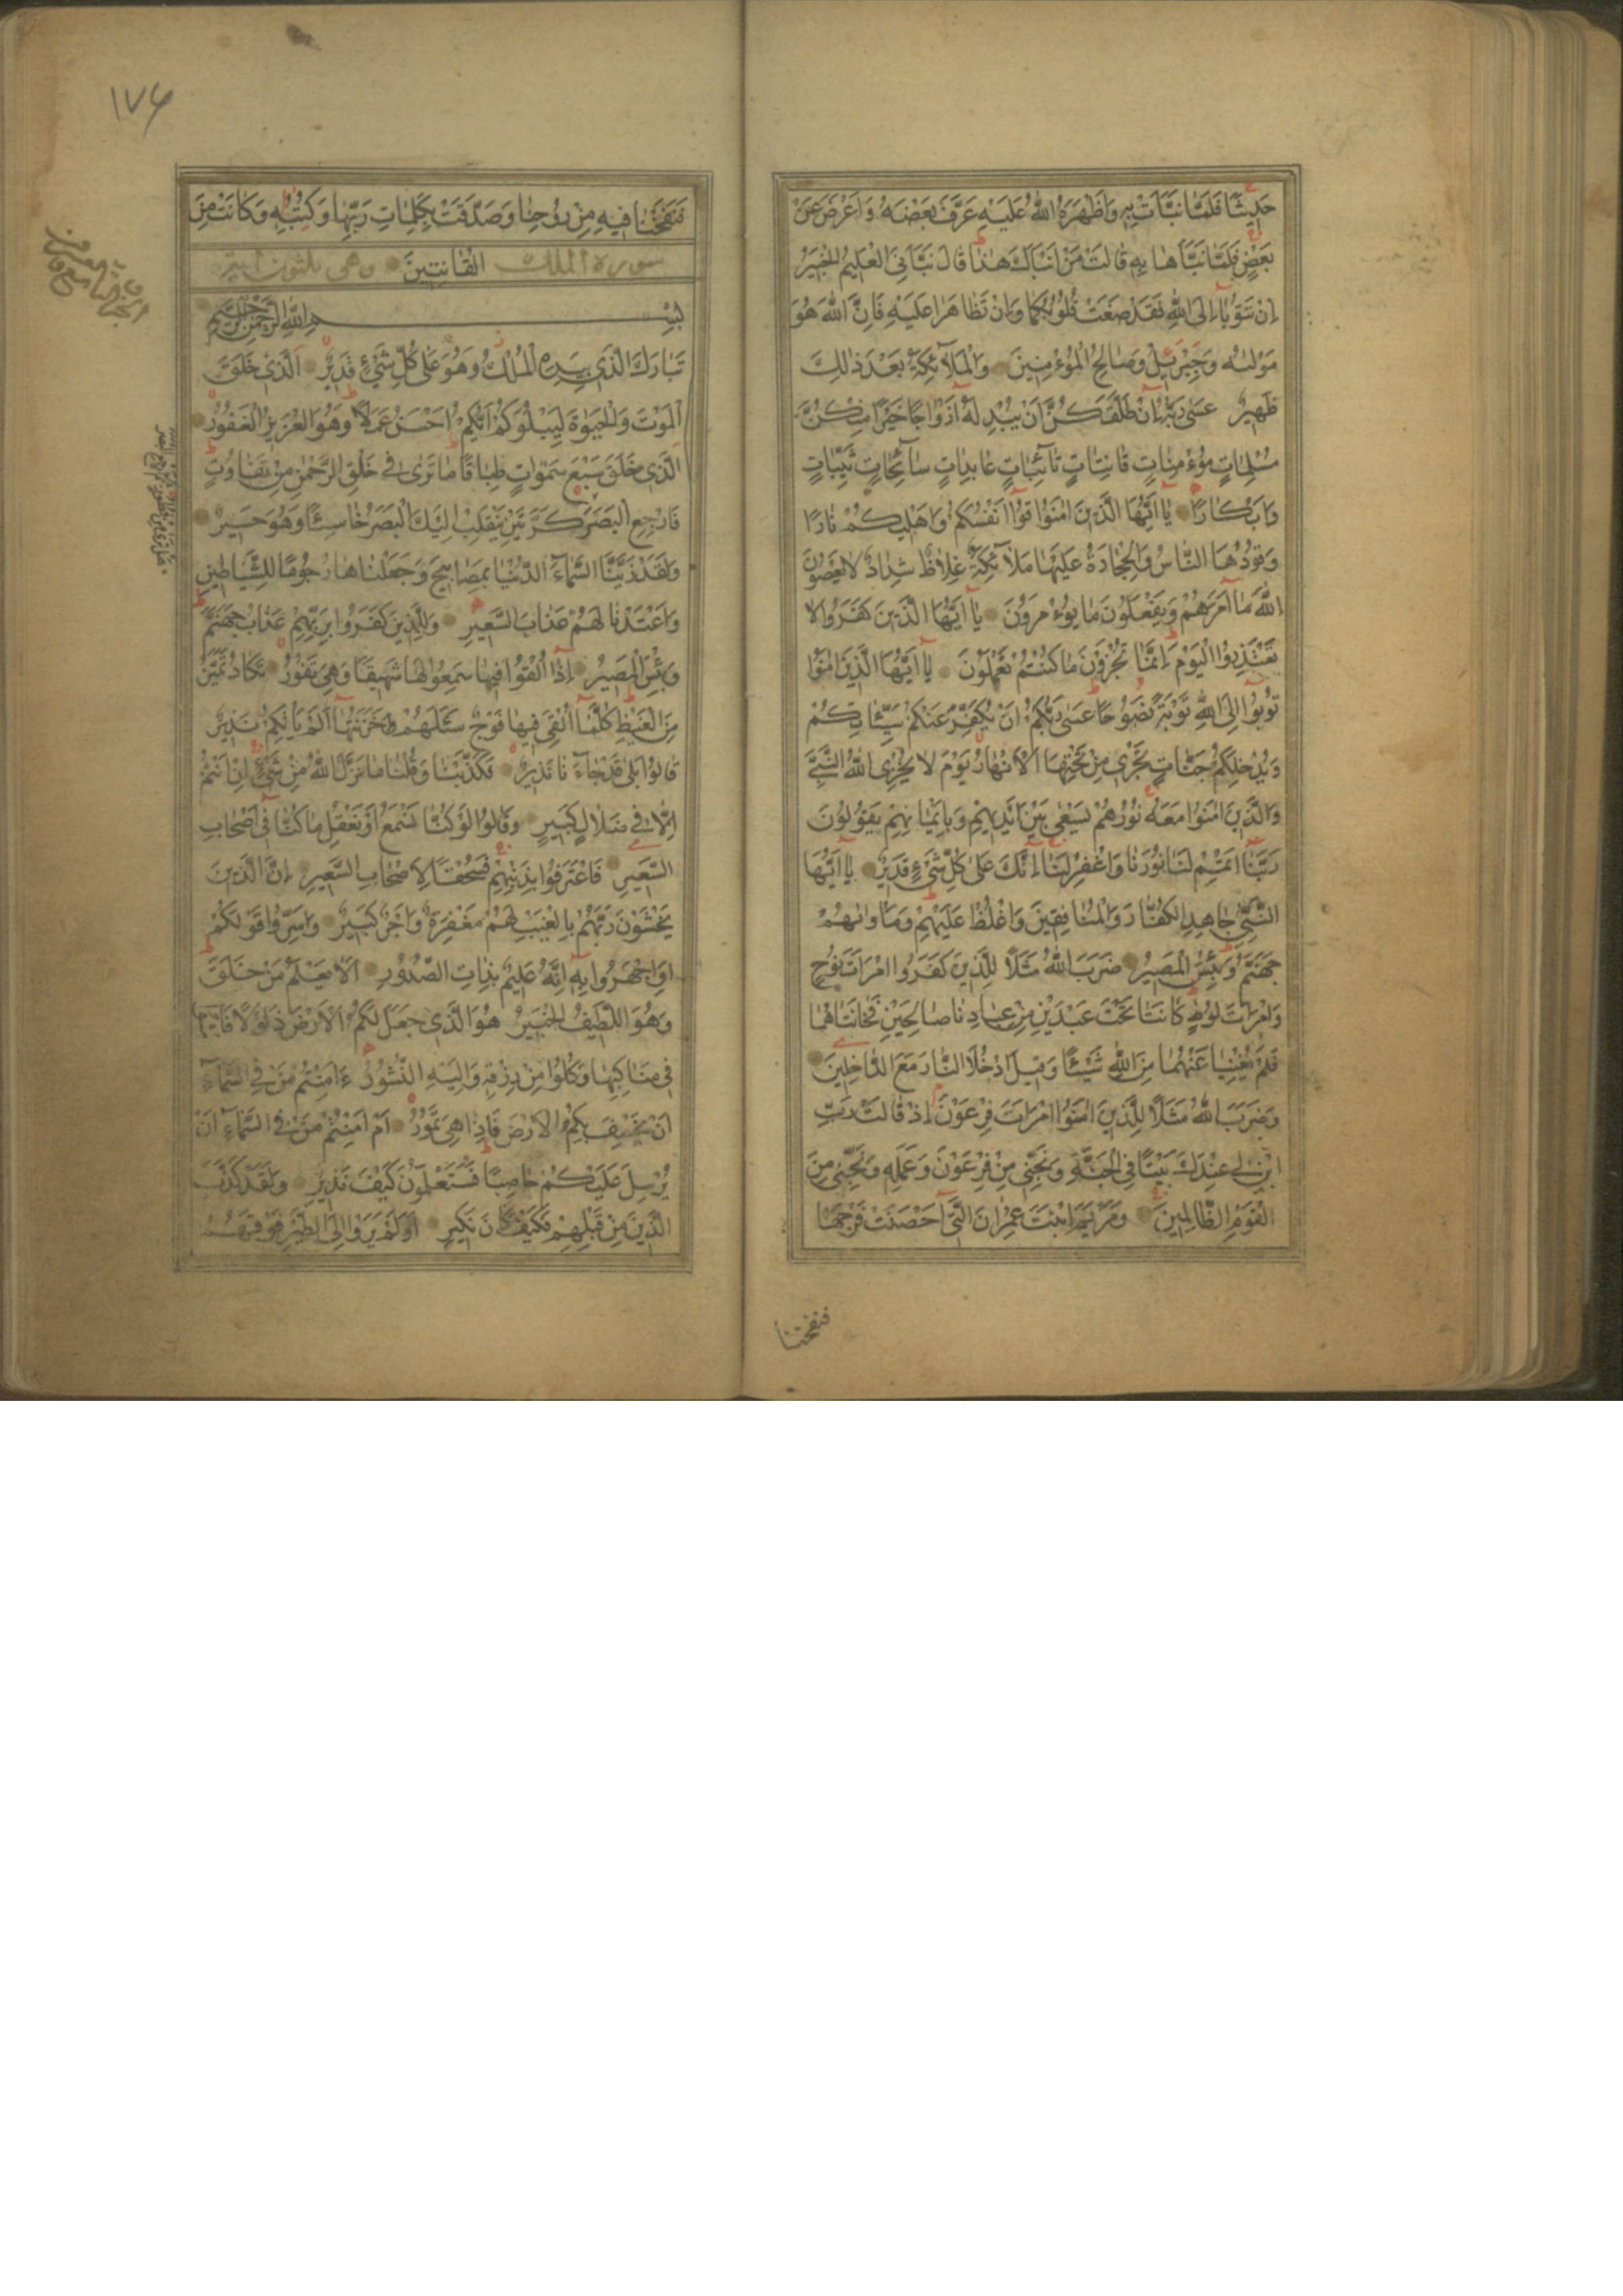 حَدِيثًا فَلَمَّا نَبَّأَتْ بِهِ وَاَظْهَرَهُ اللّٰهُ عَلَيْهِ عَرَّفَ بَعْضَهُ وَاَعْرَضَ عَنْ
بَعْضٍ فَلَمَّا نَبَّأَهَا بِهِ قَالَتْ مَنْ اَنْبَأَكَ هٰذَا قَالَ نَبَّأَنِيَ الْعَلِيمُ الْخَبِيرُ
اِنْ تَتُوْبَا اِلَى اللّٰهِ فَقَدْ صَغَتْ قُلُوْبُكُمَا وَاِنْ تَظَاهَرَا عَلَيْهِ فَاِنَّ اللّٰهَ هُوَ
مَوْلٰىهُ وَجِبْرِيلُ وَصَالِحُ الْمُؤْمِنِينَ وَالْمَلَآئِكَةُ بَعْدَ ذٰلِكَ
ظَهِيرٌ عَسٰى رَبُّهُ اِنْ طَلَّقَكُنَّ اَنْ يُبْدِلَهُ اَزْوَاجًا خَيْرًا مِنْكُنَّ
مُسْلِمَاتٍ مُؤْمِنَاتٍ قَانِتَاتٍ تَآئِبَاتٍ عَابِدَاتٍ سَآئِحَاتٍ ثَيِّبَاتٍ
وَاَبْكَارًا يَا اَيُّهَا الَّذِينَ اٰمَنُوْا قُوْا اَنْفُسَكُمْ وَاَهْلِيكُمْ نَارًا
وَقُوْدُهَا النَّاسُ وَالْحِجَارَةُ عَلَيْهَا مَلَآئِكَةٌ غِلَاظٌ شِدَادٌ لَا يَعْصُوْنَ
اللّٰهَ مَا اَمَرَهُمْ وَيَفْعَلُوْنَ مَا يُؤْمَرُوْنَ يَا اَيُّهَا الَّذِينَ كَفَرُوْا لَا
تَعْتَذِرُوا الْيَوْمَ اِنَّمَا تُجْزَوْنَ مَا كُنْتُمْ تَعْمَلُوْنَ يَا اَيُّهَا الَّذِينَ اٰمَنُوْا
تُوْبُوْا اِلَى اللّٰهِ تَوْبَةً نَصُوْحًا عَسٰى رَبُّكُمْ اَنْ يُكَفِّرَ عَنْكُمْ سَيِّئَاتِكُمْ
وَيُدْخِلَكُمْ جَنَّاتٍ تَجْرِي مِنْ تَحْتِهَا الْاَنْهَارُ يَوْمَ لَا يُخْزِي اللّٰهُ النَّبِيَّ
وَالَّذِينَ اٰمَنُوْا مَعَهُ نُوْرُهُمْ يَسْعٰى بَيْنَ اَيْدِيهِمْ وَبِاَيْمَانِهِمْ يَقُوْلُوْنَ
رَبَّنَا اَتْمِمْ لَنَا نُوْرَنَا وَاغْفِرْ لَنَا اِنَّكَ عَلٰى كُلِّ شَيْءٍ قَدِيرٌ يَا اَيُّهَا
النَّبِيُّ جَاهِدِ الْكُفَّارَ وَالْمُنَافِقِينَ وَاغْلُظْ عَلَيْهِمْ وَمَأْوٰىهُمْ
جَهَنَّمُ وَبِئْسَ الْمَصِيرُ ضَرَبَ اللّٰهُ مَثَلًا لِلَّذِينَ كَفَرُوا امْرَاَتَ نُوْحٍ
وَامْرَاَتَ لُوْطٍ كَانَتَا تَحْتَ عَبْدَيْنِ مِنْ عِبَادِنَا صَالِحَيْنِ فَخَانَتَاهُمَا
فَلَمْ يُغْنِيَا عَنْهُمَا مِنَ اللّٰهِ شَيْئًا وَقِيلَ ادْخُلَا النَّارَ مَعَ الدَّاخِلِينَ
وَضَرَبَ اللّٰهُ مَثَلًا لِلَّذِينَ اٰمَنُوا امْرَاَتَ فِرْعَوْنَ اِذْ قَالَتْ رَبِّ
ابْنِ لِي عِنْدَكَ بَيْتًا فِي الْجَنَّةِ وَنَجِّنِي مِنْ فِرْعَوْنَ وَعَمَلِهِ وَنَجِّنِي مِنَ
الْقَوْمِ الظَّالِمِينَ وَمَرْيَمَ ابْنَتَ عِمْرَانَ الَّتِي اَحْصَنَتْ فَرْجَهَا
فنفخنا
١٧۶
فَنَفَخْنَا فِيهِ مِنْ رُوْحِنَا وَصَدَّقَتْ بِكَلِمَاتِ رَبِّهَا وَكُتُبِهِ وَكَانَتْ مِنَ
سورة الملك الْقَانِتِينَ وهي ثلثون اية
بِسْمِ اللّٰهِ الرَّحْمٰنِ الرَّحِيمِ
تَبَارَكَ الَّذِي بِيَدِهِ الْمُلْكُ وَهُوَ عَلٰى كُلِّ شَيْءٍ قَدِيرٌ الَّذِي خَلَقَ
الْمَوْتَ وَالْحَيٰوةَ لِيَبْلُوَكُمْ اَيُّكُمْ اَحْسَنُ عَمَلًا وَهُوَ الْعَزِيزُ الْغَفُوْرُ
الَّذِي خَلَقَ سَبْعَ سَمٰوَاتٍ طِبَاقًا مَا تَرٰى فِي خَلْقِ الرَّحْمٰنِ مِنْ تَفَاوُتٍ
فَارْجِعِ الْبَصَرَ كَرَّتَيْنِ يَنْقَلِبْ اِلَيْكَ الْبَصَرُ خَاسِئًا وَهُوَ حَسِيرٌ
وَلَقَدْ زَيَّنَّا السَّمَآءَ الدُّنْيَا بِمَصَابِيحَ وَجَعَلْنَاهَا رُجُوْمًا لِلشَّيَاطِينِ
وَاَعْتَدْنَا لَهُمْ عَذَابَ السَّعِيرِ وَلِلَّذِينَ كَفَرُوْا بِرَبِّهِمْ عَذَابُ جَهَنَّمَ
وَبِئْسَ الْمَصِيرُ اِذَا اُلْقُوْا فِيهَا سَمِعُوْا لَهَا شَهِيقًا وَهِيَ تَفُوْرُ تَكَادُ تَمَيَّزُ
مِنَ الْغَيْظِ كُلَّمَا اُلْقِيَ فِيهَا فَوْجٌ سَئَلَهُمْ خَزَنَتُهَا اَلَمْ يَأْتِكُمْ نَذِيرٌ
قَالُوْا بَلٰى قَدْ جَآءَنَا نَذِيرٌ فَكَذَّبْنَا وَقُلْنَا مَا نَزَّلَ اللّٰهُ مِنْ شَيْءٍ اِنْ اَنْتُمْ
اِلَّا فِي ضَلَالٍ كَبِيرٍ وَقَالُوْا لَوْ كُنَّا نَسْمَعُ اَوْ نَعْقِلُ مَا كُنَّا فِي اَصْحَابِ
السَّعِيرِ فَاعْتَرَفُوْا بِذَنْبِهِمْ فَسُحْقًا لِاَصْحَابِ السَّعِيرِ اِنَّ الَّذِينَ
يَخْشَوْنَ رَبَّهُمْ بِالْغَيْبِ لَهُمْ مَغْفِرَةٌ وَاَجْرٌ كَبِيرٌ وَاَسِرُّوْا قَوْلَكُمْ
اَوِ اجْهَرُوْا بِهِ اِنَّهُ عَلِيمٌ بِذَاتِ الصُّدُوْرِ اَلَا يَعْلَمُ مَنْ خَلَقَ
وَهُوَ اللَّطِيفُ الْخَبِيرُ هُوَ الَّذِي جَعَلَ لَكُمُ الْاَرْضَ ذَلُوْلًا فَامْشُوْا
فِي مَنَاكِبِهَا وَكُلُوْا مِنْ رِزْقِهِ وَاِلَيْهِ النُّشُوْرُ ءَاَمِنْتُمْ مَنْ فِي السَّمَآءِ
اَنْ يَخْسِفَ بِكُمُ الْاَرْضَ فَاِذَا هِيَ تَمُوْرُ اَمْ اَمِنْتُمْ مَنْ فِي السَّمَآءِ اَنْ
يُرْسِلَ عَلَيْكُمْ حَاصِبًا فَسَتَعْلَمُوْنَ كَيْفَ نَذِيرِ وَلَقَدْ كَذَّبَ
الَّذِينَ مِنْ قَبْلِهِمْ فَكَيْفَ كَانَ نَكِيرِ اَوَلَمْ يَرَوْا اِلَى الطَّيْرِ فَوْقَهُمْ